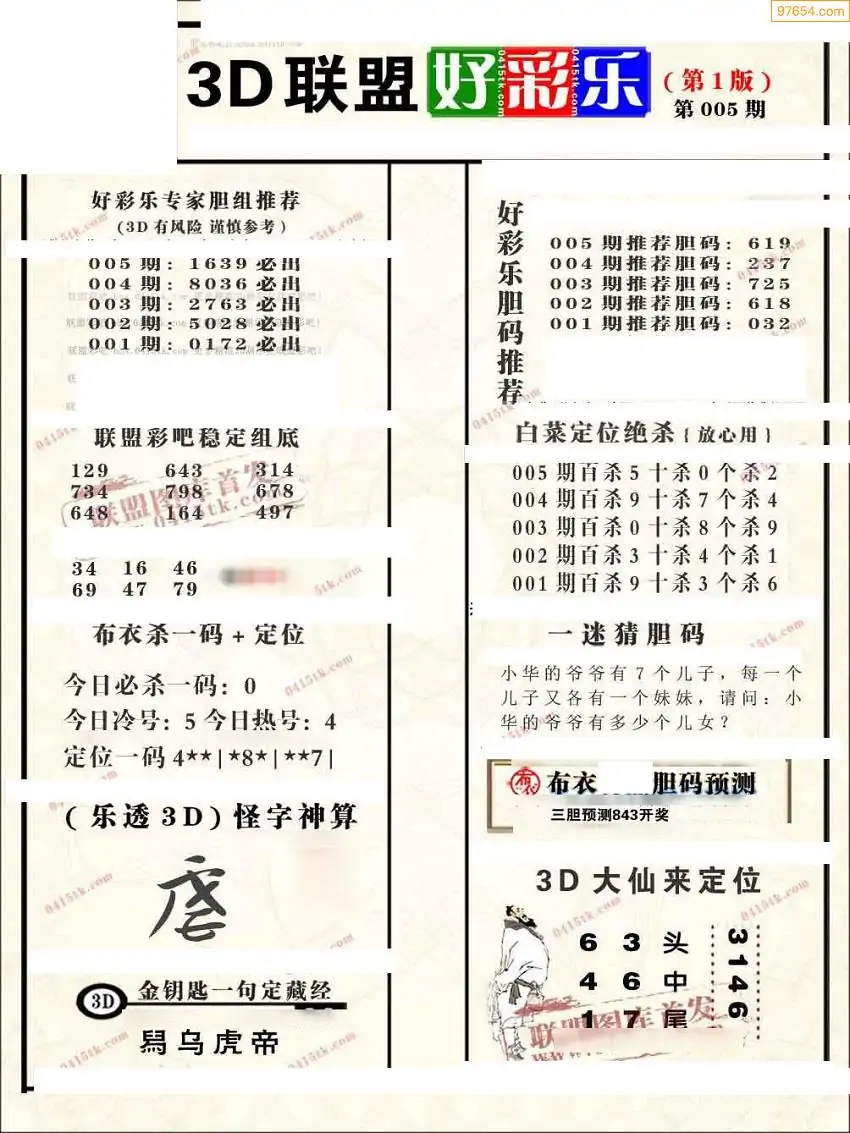 97654.com
3D联盟好彩乐
(第1版)
第005期
好彩乐专家胆组推荐
(3D有风险 谨慎参考)
005期: 1639必出
004期: 8036必出
003期: 2763必出
002期: 5028必出
001期: 0172必出
联盟彩吧稳定组底
129 643 314
734 798 678
648 164 497
34 16 46
69 47 79
布衣杀一码+定位
今日必杀一码: 0
今日冷号: 5 今日热号: 4
定位一码 4**|*8*|**7|
(乐透3D)怪字神算
3D
金钥匙一句定藏经
乌虎帝
好彩乐胆码推荐
005期推荐胆码: 619
004期推荐胆码: 237
003期推荐胆码: 725
002期推荐胆码: 618
001期推荐胆码: 032
白菜定位绝杀{放心用}
005期百杀5十杀0个杀2
004期百杀9十杀7个杀4
003期百杀0十杀8个杀9
002期百杀3十杀4个杀1
001期百杀9十杀3个杀6
一迷猜胆码
小华的爷爷有7个儿子,每一个
儿子又各有一个妹妹,请问:小
华的爷爷有多少个儿女?
布衣 胆码预测
三胆预测843开奖
3D大仙来定位
6 3 头
4 6 中
1 7 尾
3146
联盟图库首发
0415tk.com